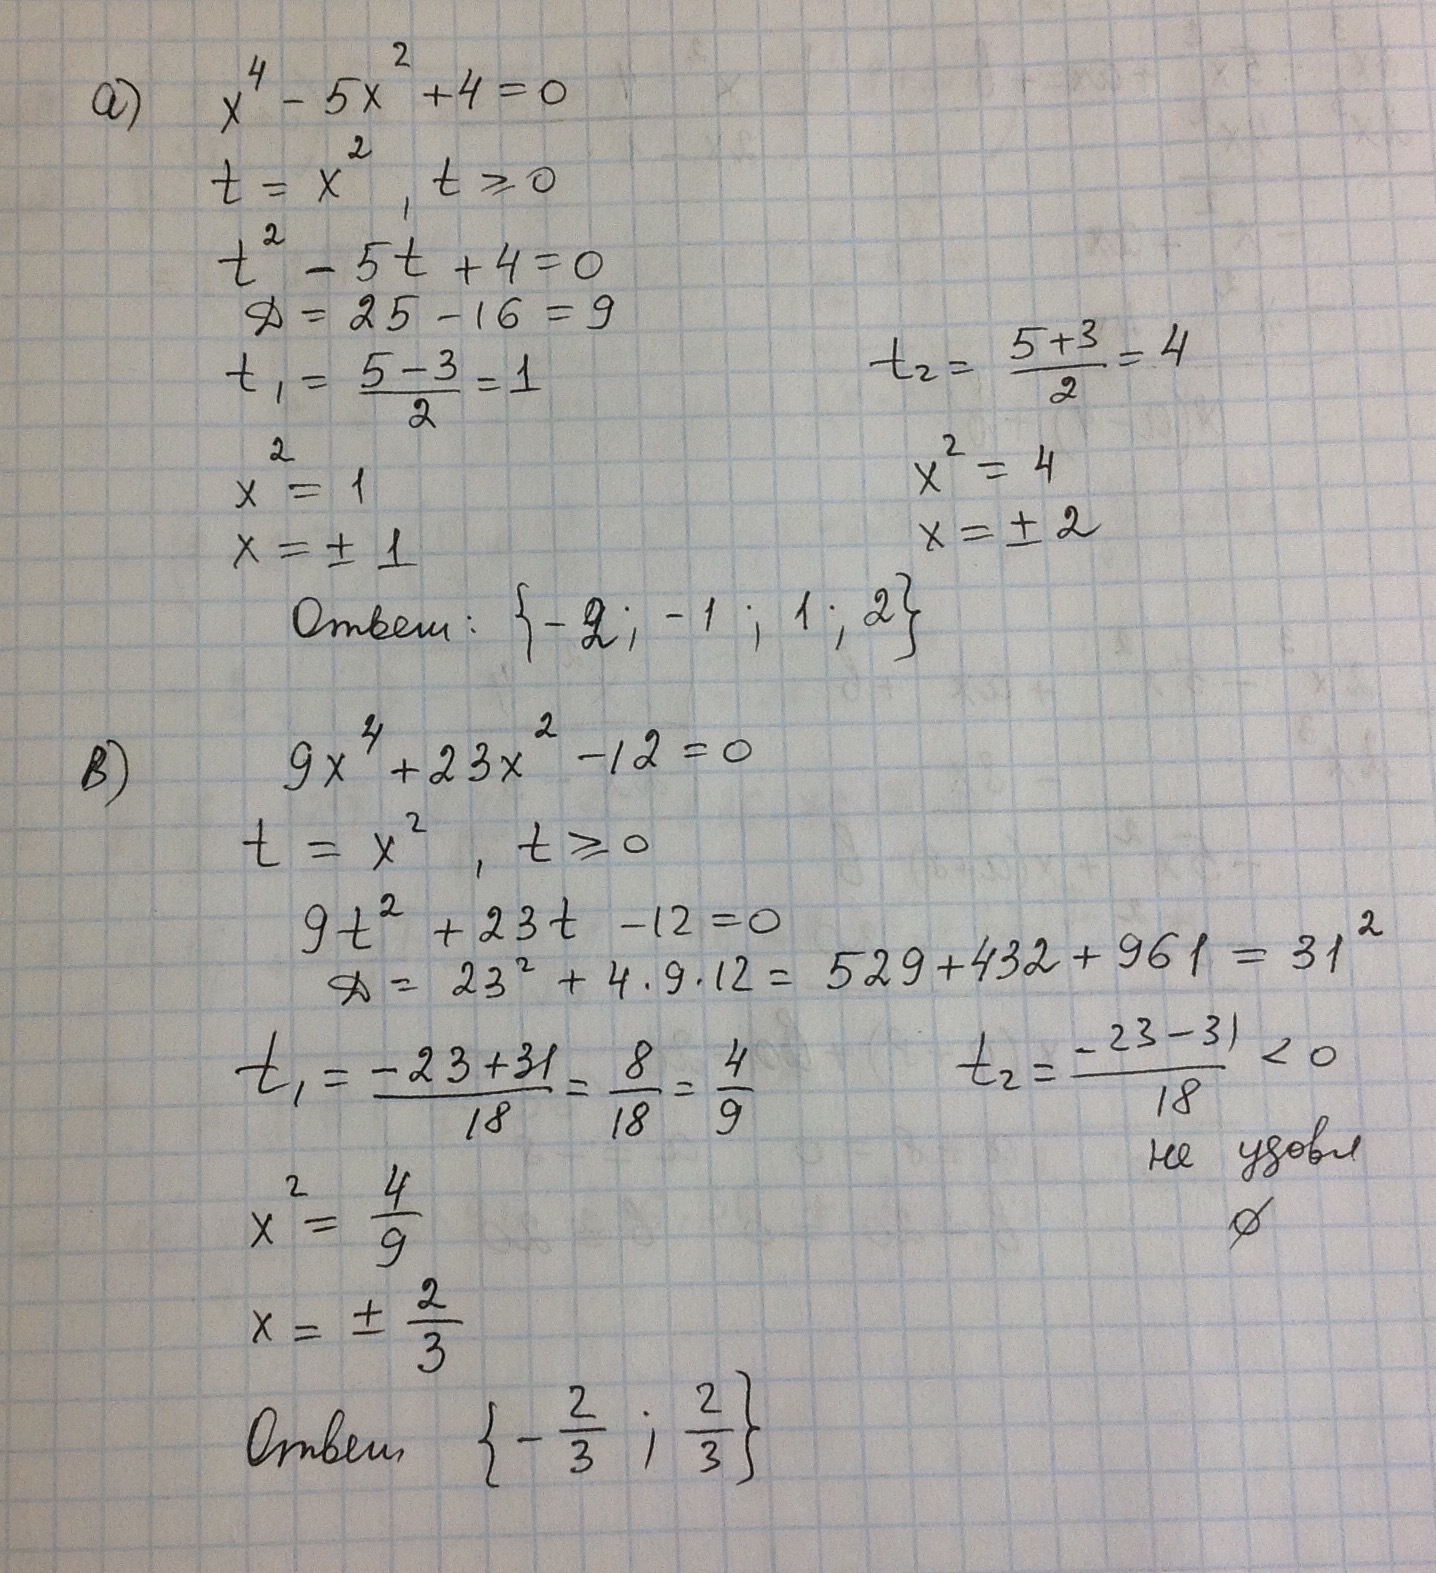 а) x⁴ - 5x² + 4 = 0
t = x², t ≥ 0
t² - 5t + 4 = 0
D = 25 - 16 = 9
t₁ = (5-3)/2 = 1    t₂ = (5+3)/2 = 4
x² = 1    x² = 4
x = ± 1    x = ± 2
Ответ: {-2; -1; 1; 2}
в) 9x⁴ + 23x² - 12 = 0
t = x², t ≥ 0
9t² + 23t - 12 = 0
D = 23² + 4·9·12 = 529 + 432 + 961 = 31²
t₁ = (-23+31)/18 = 8/18 = 4/9    t₂ = (-23-31)/18 < 0
не удовл
x² = 4/9    ∅
x = ± 2/3
Ответ {-2/3; 2/3}